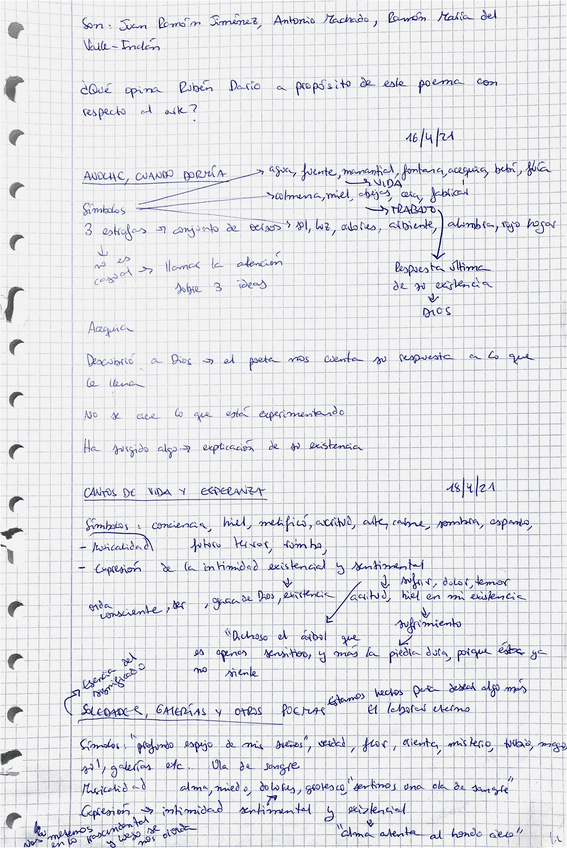 Son: Juan Ramón Jiménez, Antonio Machado, Ramón María del
Valle-Inclán
¿Qué opina Rubén Darío a propósito de este poema con
respecto al arte?
16/4/21
ANOCHE, CUANDO DORMÍA
→ agua, fuente, manantial, fontana, acequia, bebí, fluía
→ VIDA
Símbolos
→ colmena, miel, abejas, cera, fabricar
→ TRABAJO
3 estrofas → conjunto de versos → sol, luz, ardiente, alumbra, rojo hogar
no es casual → llamar la atención
sobre 3 ideas
Respuesta última
de su existencia
DIOS
Acequia
Descubrió a Dios → el poeta nos cuenta su respuesta a lo que
le llena
No se cree lo que está experimentando
Ha surgido algo → explicación de su existencia
CANTOS DE VIDA Y ESPERANZA
18/4/21
Símbolos: conciencia, hiel, melificó, acritud, arte, carne, sombra, espanto,
- Musicalidad
futuro terror, rumbo,
- Expresión de la intimidad existencial y sentimental
sufrir, dolor, temor
vida consciente, ser, gracia de Dios, existencia
acritud, hiel en mi existencia
sufrimiento
"Dichoso el árbol que
es apenas sensitivo, y más la piedra dura, porque ésta ya
no siente
Esencia del
significado
Estamos hechos para desear algo más
SOLEDADES, GALERÍAS Y OTROS POEMAS
El laborar eterno
Símbolos: "profundo espejo de mis sueños", verdad, flor, misterio,
sol, galerías etc. Ola de sangre
Musicalidad
alma, miedo, dolores, grotesco, "sentimos una ola de sangre"
Expresión → intimidad sentimental y existencial
"alma atenta al hondo cielo"
nos
en lo trascendental
y luego se
nos olvida